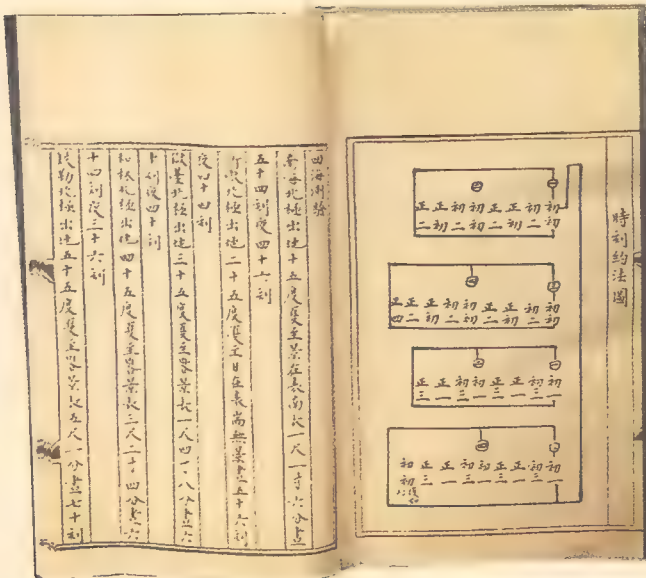 時刻約法圖
初初 初二 正初 正二 初初 初二 正初 正二
初初 初二 正初 正二 初初 初二 正初 正二 正四
初一 初三 正一 正三 初一 初三 正一 正三
初一 初三 正一 正三 初一 初三 正一 正三 初初
四海測驗
南海北極出地十五度夏至景在表南長一尺一寸六分晝
五十四刻夜四十六刻
衡岳北極出地二十五度夏至日在表端無景晝五十六刻
夜四十四刻
嶽臺北極出地三十五度夏至晷景長一尺四寸八分晝六
十刻夜四十刻
和林北極出地四十五度夏至晷景長三尺二寸四分晝六
十四刻夜三十六刻
鐵勒北極出地五十五度夏至晷景長五尺一分晝七十刻